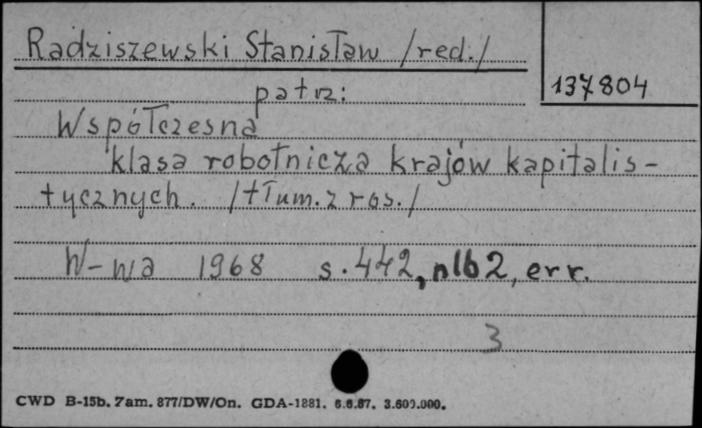 Radziszewski Stanisław /red./
137804
patrz:
Współczesna
klasa robotnicza krajów kapitalis-
tycznych. /tłum. z ros./
W-wa 1968 s. 442, nlb 2, err.
3
CWD B-15b. Zam. 877/DW/On. GDA-1881. 6.6.67. 3.600.000.